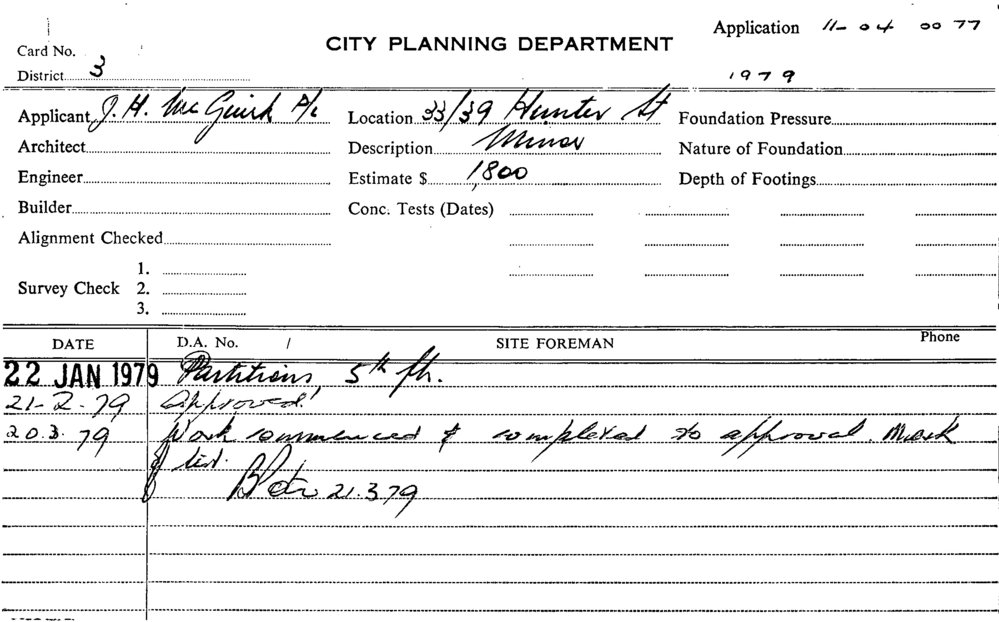 Application 11-04 0077
Card No.
CITY PLANNING DEPARTMENT
District 3
1979
Applicant J. H. McGuirk P/L
Location 33/39 Hunter St
Foundation Pressure
Architect
Description Minor
Nature of Foundation
Engineer
Estimate $ 1,800
Depth of Footings
Builder
Conc. Tests (Dates)
Alignment Checked
1.
Survey Check 2.
3.
DATE D.A. No. / SITE FOREMAN Phone
22 JAN 1979 Partitions, 5th flr.
21-2-79 Approved.
20.3.79 Work commenced & completed to approval. Mark
off list.
21.3.79